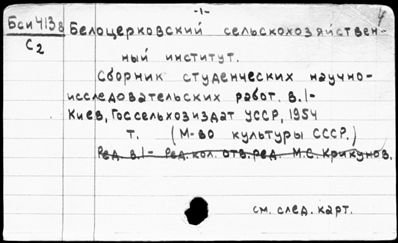 -1-
Бси4138 Белоцерковский сельскохозяйствен-
С2 ный институт.
Сборник студенческих научно-
исследовательских работ. в.1-
Киев, Госсельхозиздат УССР, 1954
т. (М-во культуры СССР.)
Ред. в.1- Ред.кол. отв.ред. М.С. Крикунов.
см. след. карт.